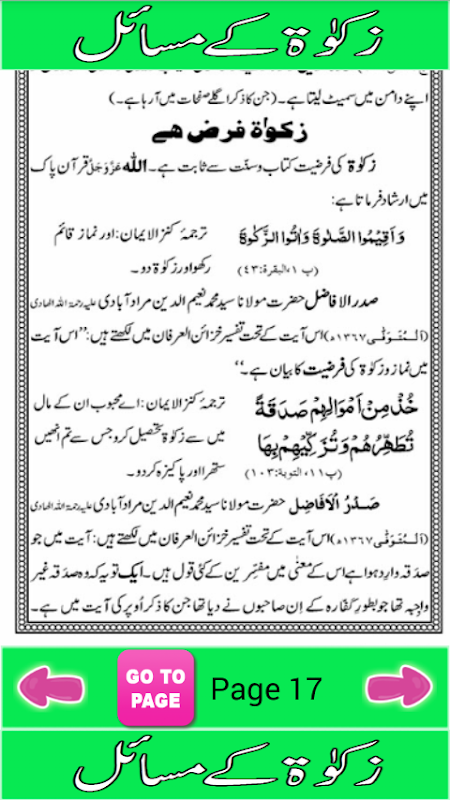 زکوٰۃ کے مسائل
اپنے دامن میں سمیٹ لیتا ہے۔ (جن کا ذکر اگلے صفحات میں آرہا ہے۔)
زکوٰۃ فرض ھے
زکوٰۃ کی فرضیت کتاب و سنّت سے ثابت ہے۔ اللّٰہ عَزَّوَجَلَّ قرآن پاک
میں ارشاد فرماتا ہے:
وَاَقِیْمُوا الصَّلٰوۃَ وَاٰتُوا الزَّکٰوۃَ
ترجمۂ کنز الایمان: اور نماز قائم
رکھو اور زکوٰۃ دو۔
(پ ۱، البقرۃ: ۴۳)
صدرالافاضل حضرت مولانا سید محمد نعیم الدین مراد آبادی علیہ رحمۃ اللہ الھادی
(اَلْمُتَوَفّٰی ۱۳۶۷ھ) اس آیت کے تحت تفسیر خزائن العرفان میں لکھتے ہیں: ''اس آیت
میں نماز و زکوٰۃ کی فرضیت کا بیان ہے۔''
خُذْ مِنْ اَمْوَالِهِمْ صَدَقَةً
تُطَهِّرُهُمْ وَتُزَكِّيْهِمْ بِهَا
ترجمۂ کنز الایمان: اے محبوب ان کے مال
میں سے زکوٰۃ تحصیل کرو جس سے تم انھیں
ستھرا اور پاکیزہ کردو۔
(پ ۱۱، التوبۃ: ۱۰۳)
صَدرُ الْاَفَاضِل حضرت مولانا سید محمد نعیم الدین مراد آبادی علیہ رحمۃ اللہ الھادی
(اَلْمُتَوَفّٰی ۱۳۶۷ھ) اس آیت کے تحت تفسیر خزائن العرفان میں لکھتے ہیں: آیت میں جو
صدقہ وارد ہوا ہے اس کے معنٰی میں مفسّرین کے کئی قول ہیں۔ ایک تو یہ کہ وہ صدقہ غیر
واجبہ تھا جو بطورِ کفّارہ کے اِن صاحبوں نے دیا تھا جن کا ذکر اُوپر کی آیت میں ہے۔
GO TO
PAGE
Page 17
زکوٰۃ کے مسائل